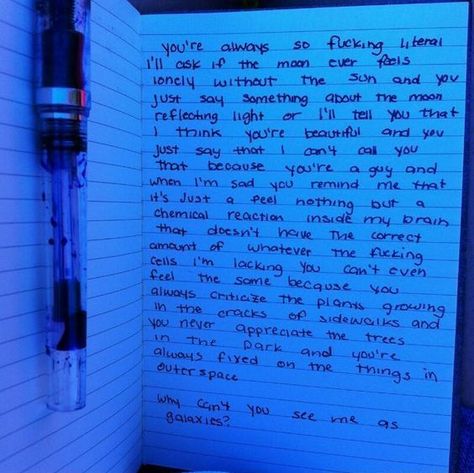 you're always so fucking literal
I'll ask if the moon ever feels
lonely without the sun and you
just say something about the moon
reflecting light or I'll tell you that
I think you're beautiful and you
just say that I can't call you
that because you're a guy and
when I'm sad you remind me that
it's just a feel nothing but a
chemical reaction inside my brain
that doesn't have the correct
amount of whatever the fucking
cells I'm lacking you can't even
feel the same because you
always criticize the plants growing
in the cracks of sidewalks and
you never appreciate the trees
in the park and you're
always fixed on the things in
outerspace
why can't you see me as
galaxies?